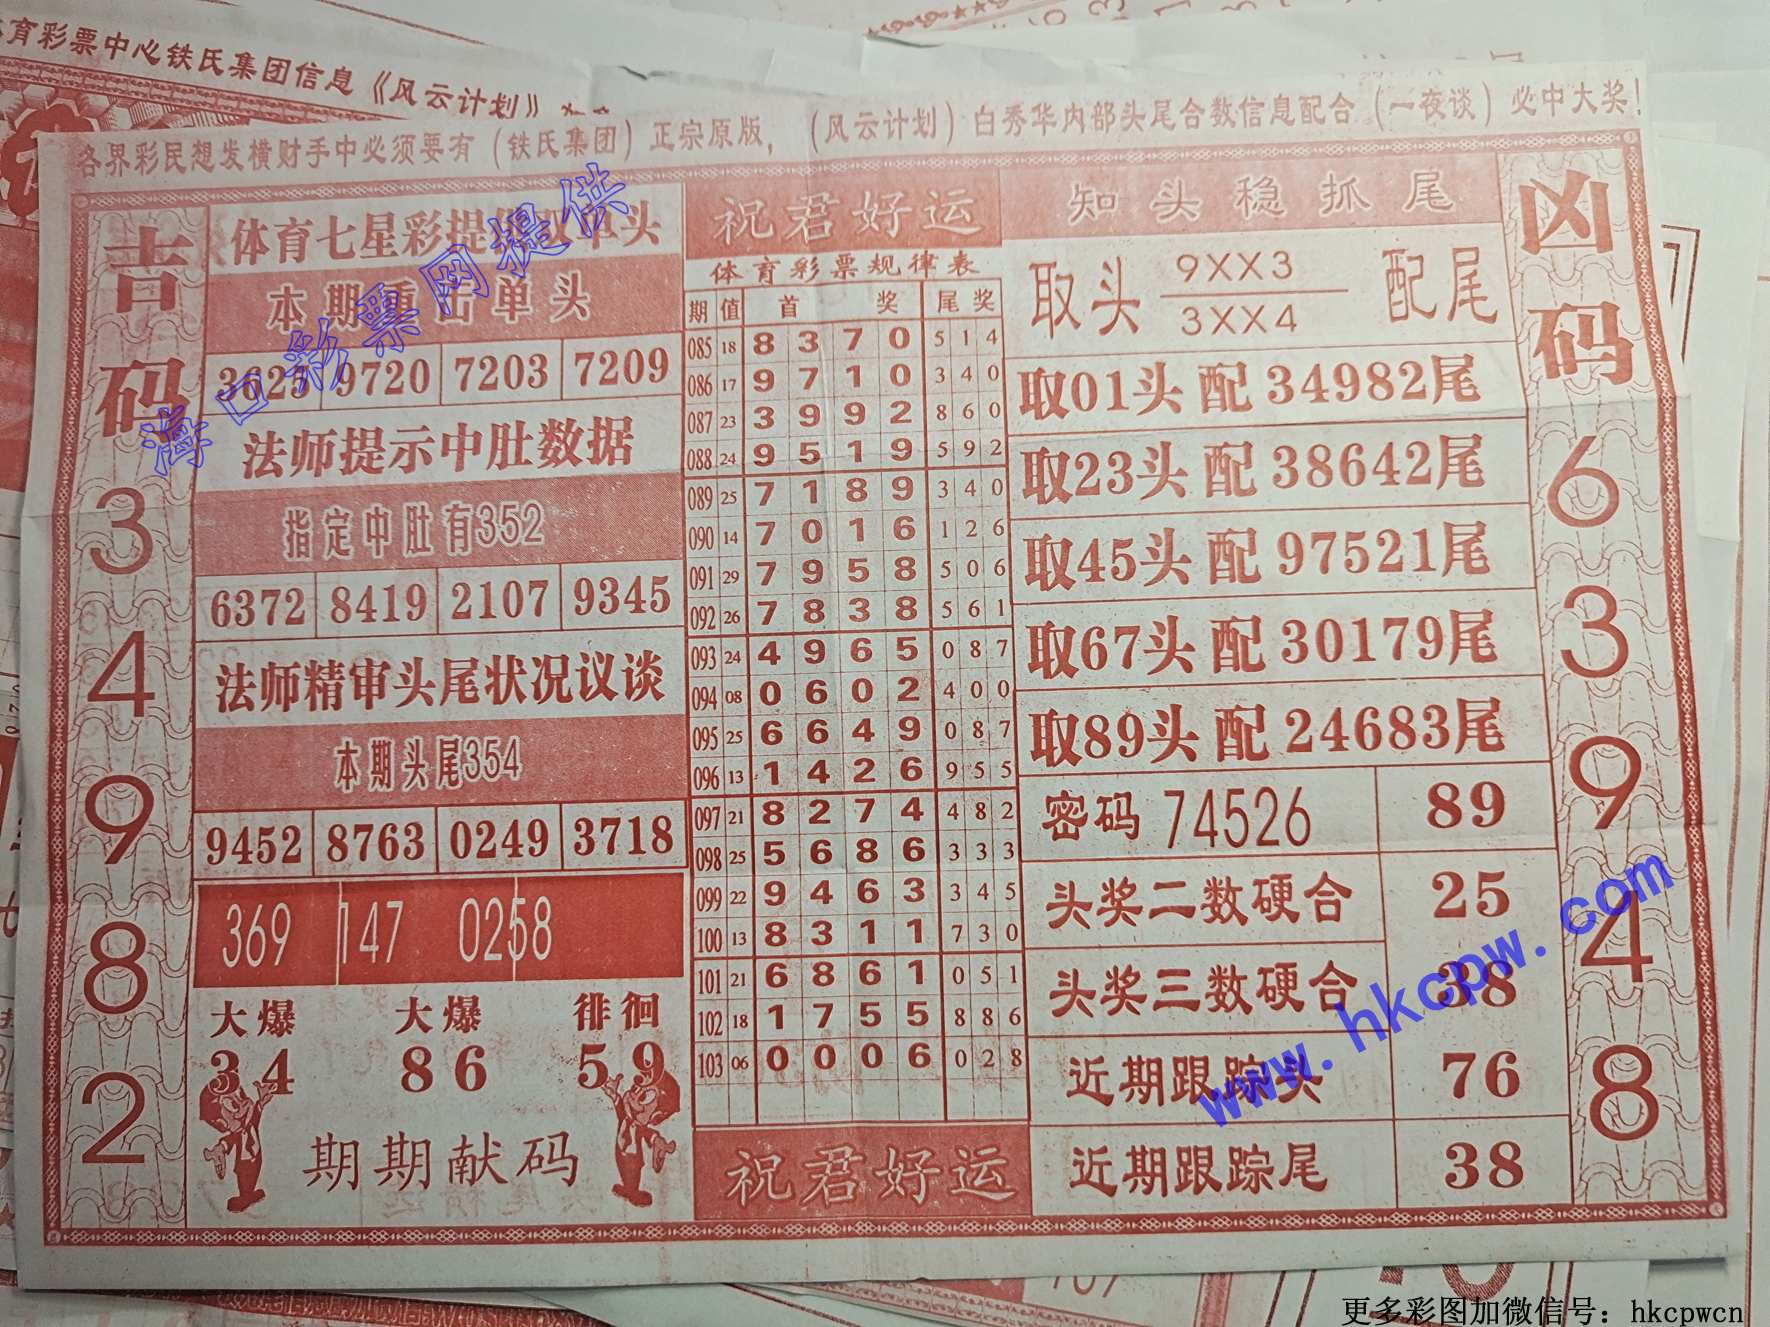 育彩票中心铁氏集团信息《风云计划》
各界彩民想发横财手中必须要有（铁氏集团）正宗原版，（风云计划）白秀华内部头尾合数信息配合（一夜谈）必中大奖！
吉码
3
4
9
8
2
体育七星彩提供双单头
本期重击单头
3625 9720 7203 7209
法师提示中肚数据
指定中肚有352
6372 8419 2107 9345
法师精审头尾状况议谈
本期头尾354
9452 8763 0249 3718
369 147 0258
大爆 大爆 徘徊
34 86 59
期期献码
祝君好运
体育彩票规律表
期 值 首奖 尾奖
085 18 8 3 7 0 5 1 4
086 17 9 7 1 0 3 4 0
087 23 3 9 9 2 8 6 0
088 24 9 5 1 9 5 9 2
089 25 7 1 8 9 3 4 0
090 14 7 0 1 6 1 2 6
091 29 7 9 5 8 5 0 6
092 26 7 8 3 8 5 6 1
093 24 4 9 6 5 0 8 7
094 08 0 6 0 2 4 0 0
095 25 6 6 4 9 0 8 7
096 13 1 4 2 6 9 5 5
097 21 8 2 7 4 4 8 2
098 25 5 6 8 6 3 3 3
099 22 9 4 6 3 3 4 5
100 13 8 3 1 1 7 3 0
101 21 6 8 6 1 0 5 1
102 18 1 7 5 5 8 8 6
103 06 0 0 0 6 0 2 8
祝君好运
知头稳抓尾
取头 9XX3 配尾
3XX4
取01头 配 34982尾
取23头 配 38642尾
取45头 配 97521尾
取67头 配 30179尾
取89头 配 24683尾
密码 74526 89
头奖二数硬合 25
头奖三数硬合 38
近期跟踪头 76
近期跟踪尾 38
凶码
6
3
9
4
8
海口彩票网提供
www.hkcpw.com
更多彩图加微信号：hkcpwcn